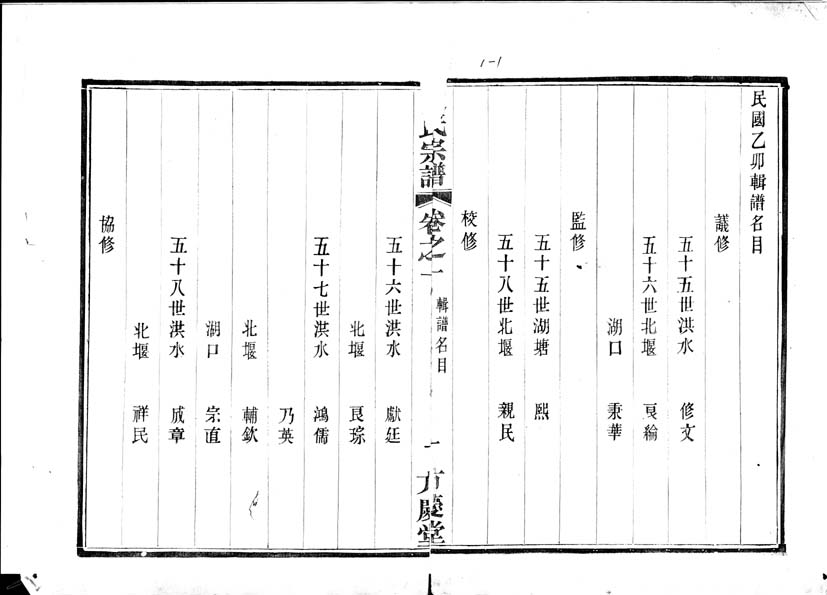 1-1
民國乙卯輯譜名目
議修
五十五世洪水 修文
五十六世北堰 良綸
湖口 秉華
監修
五十五世湖塘 熙
五十八世北堰 親民
校修
氏宗譜 卷之一 輯譜名目 一 慶堂
五十六世洪水 獻廷
北堰 良琮
五十七世洪水 鴻儒
乃英
北堰 輔欽
湖口 宗直
五十八世洪水 成章
北堰 祥民
協修